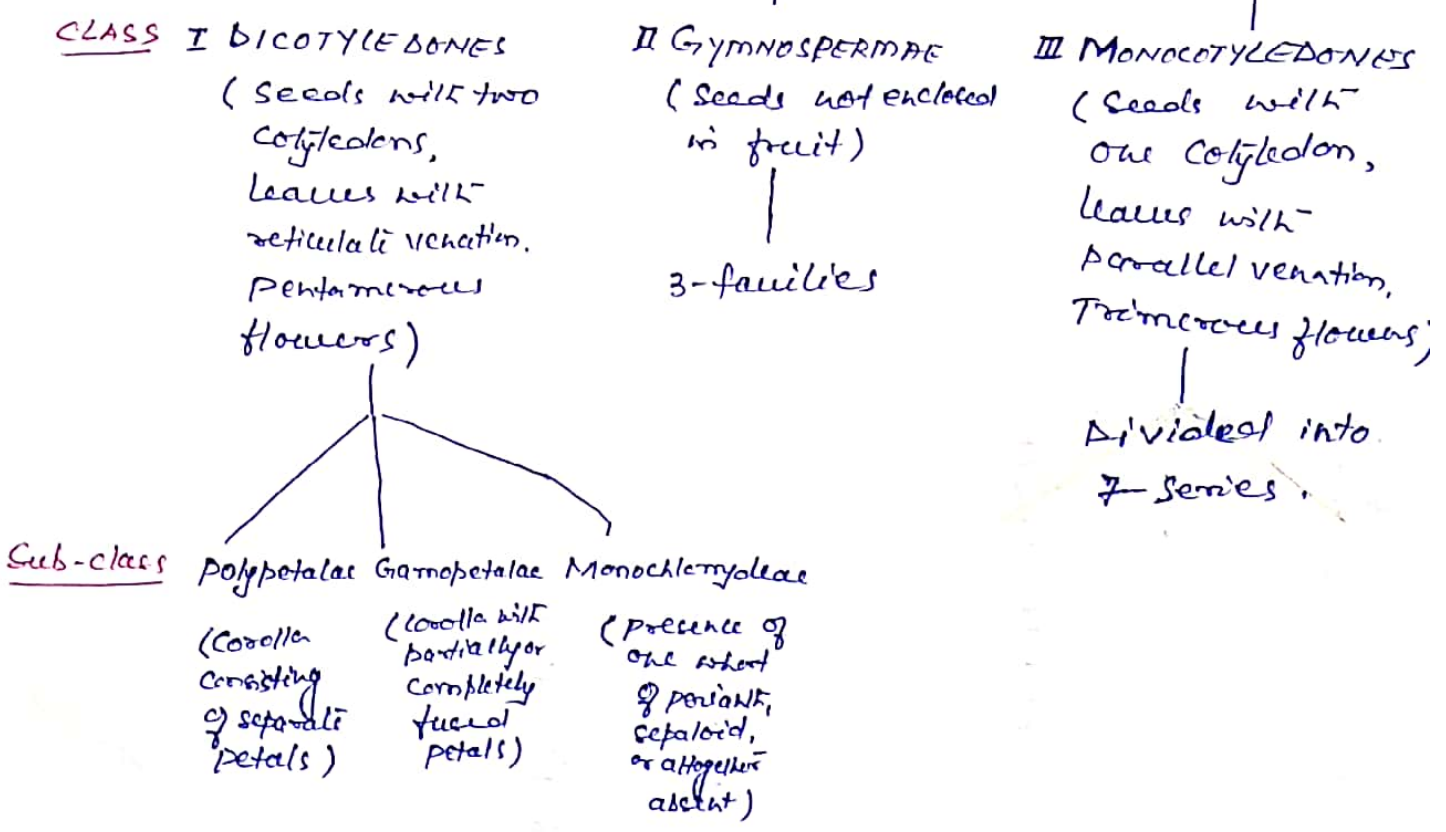 CLASS I DICOTYLEDONES
(Seeds with two
cotyledons,
Leaves with
reticulate venation.
Pentamerous
flowers)
II GYMNOSPERMAE
(Seeds not enclosed
in fruit)
3-families
III MONOCOTYLEDONES
(Seeds with
one cotyledon,
leaves with
parallel venation,
Trimerous flowers)
Divided into
7-series.
Sub-class Polypetalae Gamopetalae Monochlamydeae
(Corolla
consisting
of separate
petals)
(Corolla with
partially or
completely
fused
petals)
(Presence of
one whorl
of perianth,
sepaloid,
or altogether
absent)